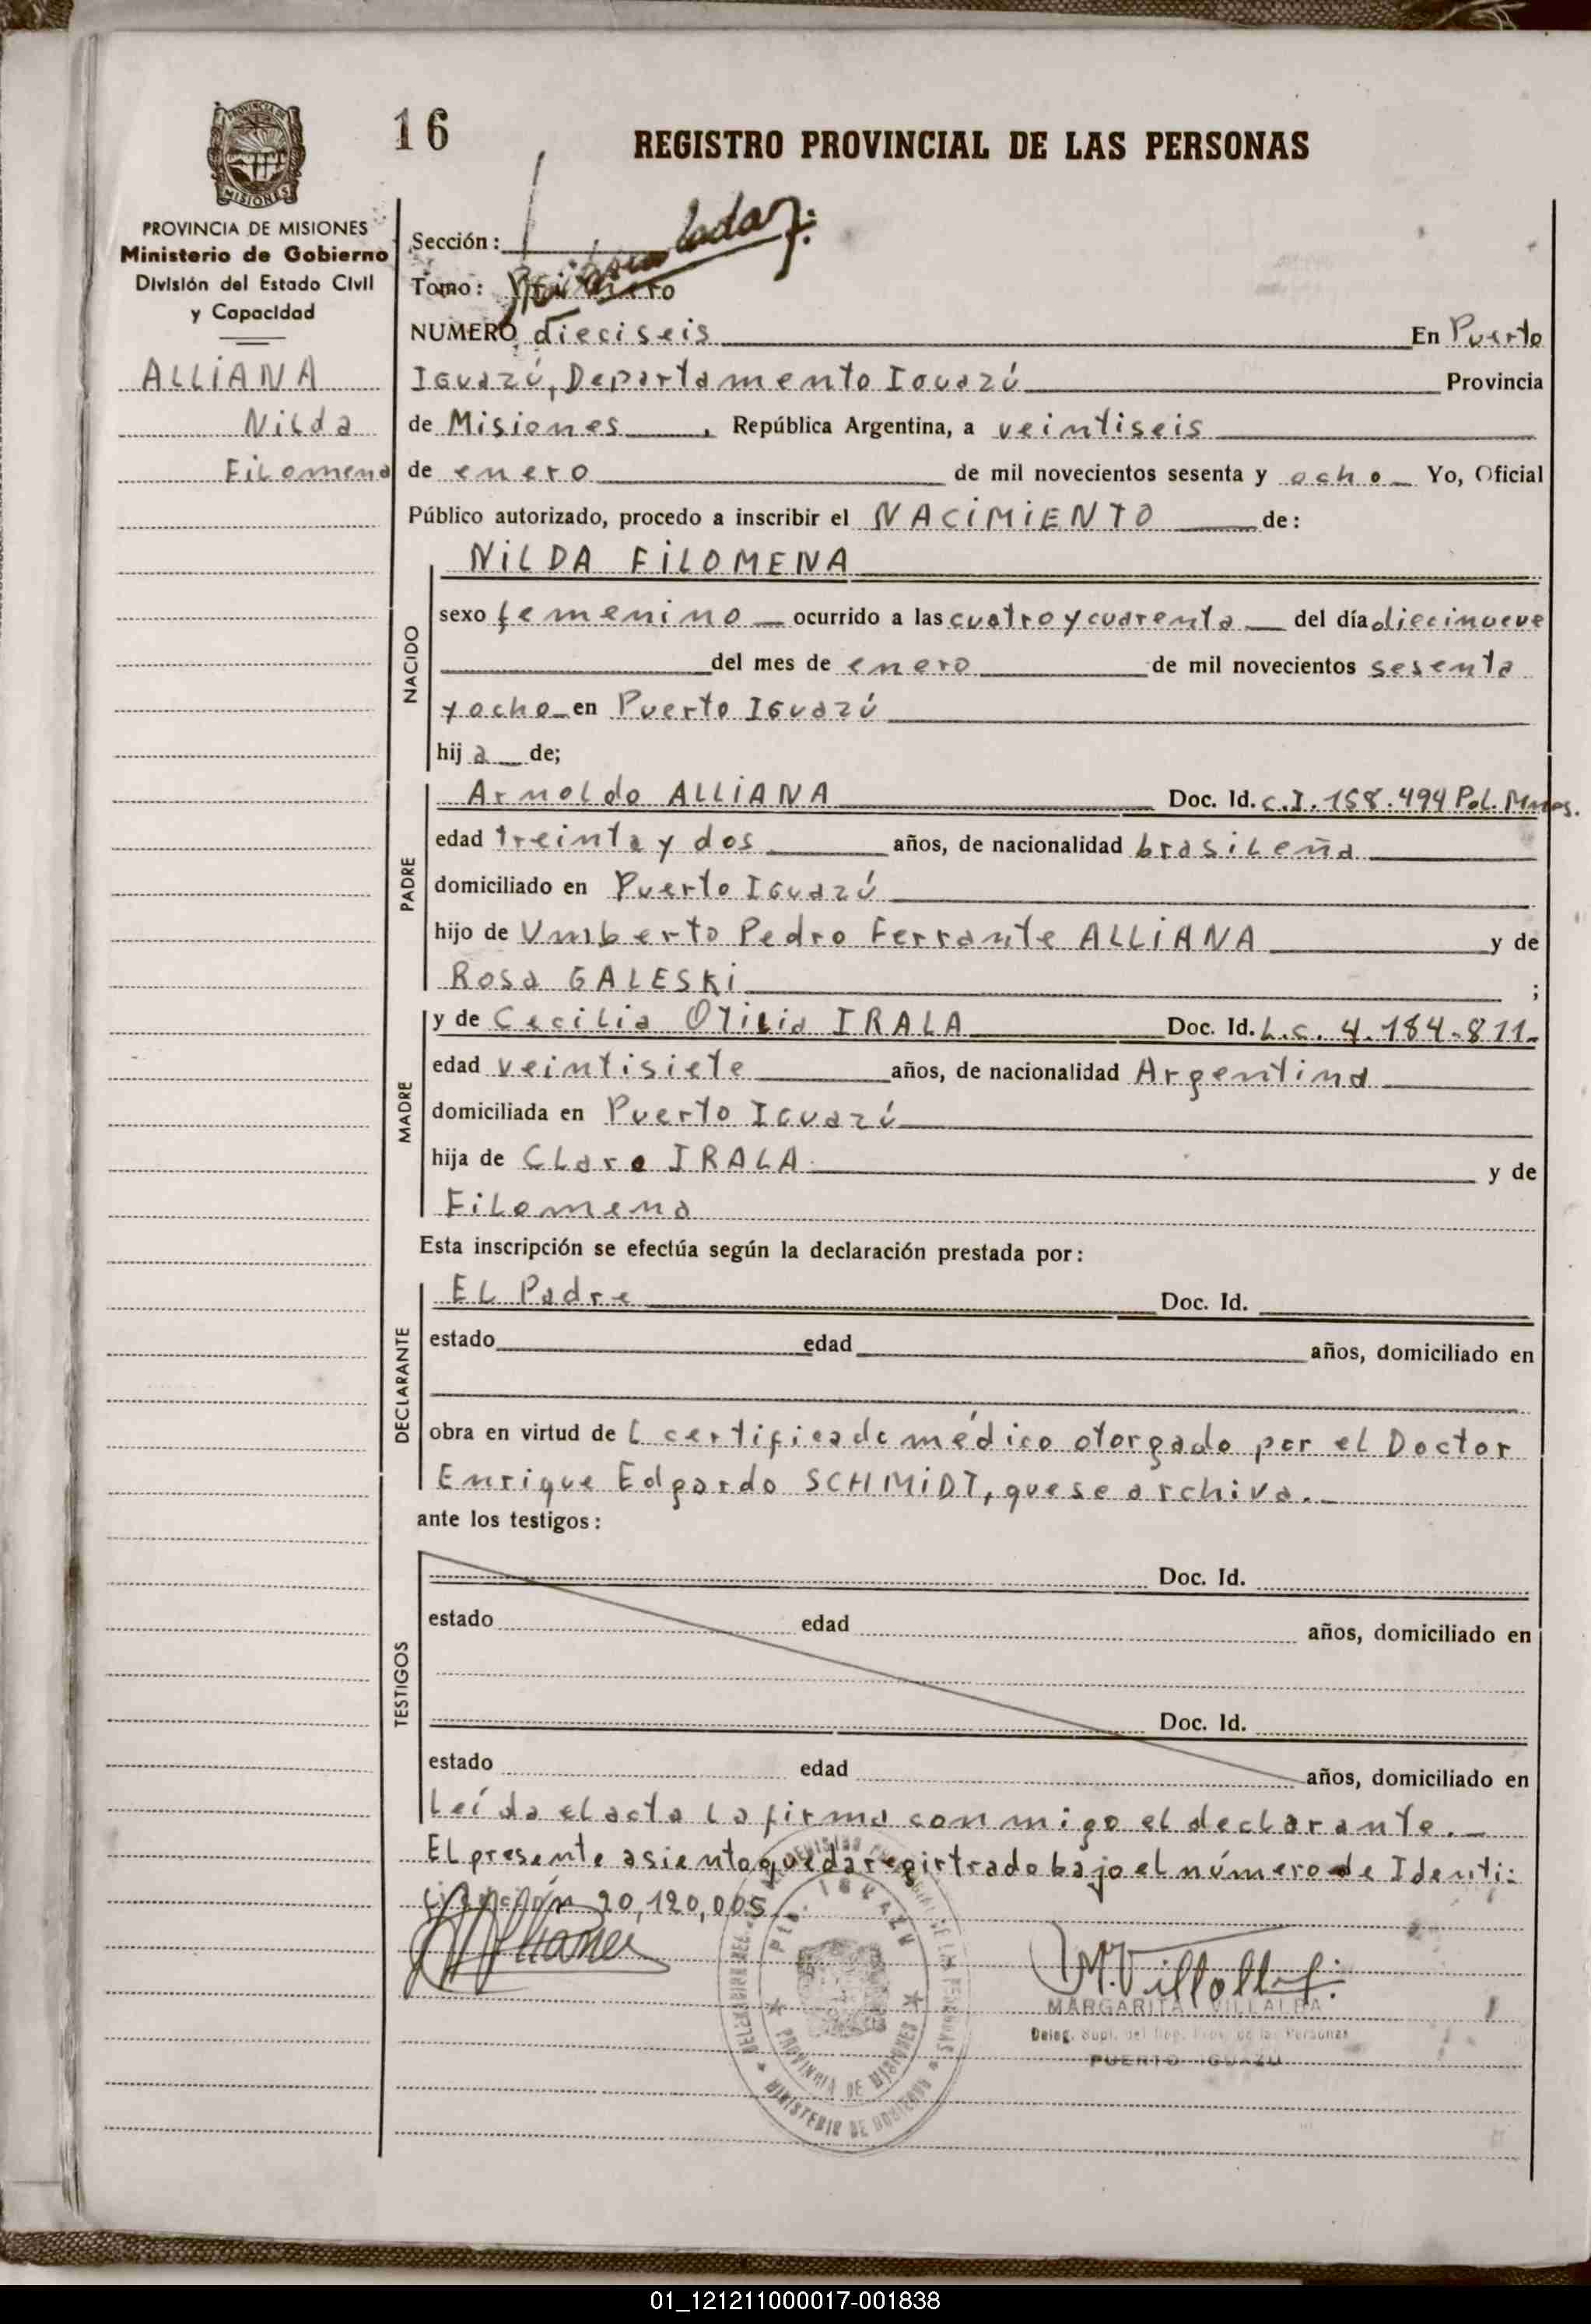 PROVINCIA DE
MISIONES
16
REGISTRO PROVINCIAL DE LAS PERSONAS
PROVINCIA DE MISIONES
Ministerio de Gobierno
División del Estado Civil
y Capacidad
ALLIANA
Nilda
Filomena
Sección:
Tomo:
NUMERO dieciseis En Puerto
Iguazú, Departamento Iguazú Provincia
de Misiones, República Argentina, a veintiseis
de enero de mil novecientos sesenta y ocho Yo, Oficial
Público autorizado, procedo a inscribir el NACIMIENTO de:
NACIDO
NILDA FILOMENA
sexo femenino ocurrido a las cuatro y cuarenta del día diecinueve
del mes de enero de mil novecientos sesenta
y ocho en Puerto Iguazú
hij a de;
PADRE
Arnoldo ALLIANA Doc. Id. C.I. 158.494 Pol. Mnes.
edad treinta y dos años, de nacionalidad brasileña
domiciliado en Puerto Iguazú
hijo de Umberto Pedro Ferrante ALLIANA y de
Rosa GALESKI ;
MADRE
y de Cecilia Otilia IRALA Doc. Id. L.C. 4.184.811.
edad veintisiete años, de nacionalidad Argentina
domiciliada en Puerto Iguazú
hija de Claro IRALA y de
Filomena
Esta inscripción se efectúa según la declaración prestada por:
DECLARANTE
El Padre Doc. Id.
estado edad años, domiciliado en
obra en virtud de l certificado médico otorgado por el Doctor
Enrique Edgardo SCHMIDT, que se archiva.
ante los testigos:
TESTIGOS
Doc. Id.
estado edad años, domiciliado en
Doc. Id.
estado edad años, domiciliado en
Leída el acta la firma conmigo el declarante.
El presente asiento queda regirtrado bajo el número de Identi-
ficación 20,120,005
PTO. IGUAZU
PROVINCIA DE MISIONES
MINISTERIO DE GOBIERNO
M. Villalba
MARGARITA VILLALBA
Deleg. Supl. del Reg. Prov. de las Personas
PUERTO IGUAZU
01_121211000017-001838